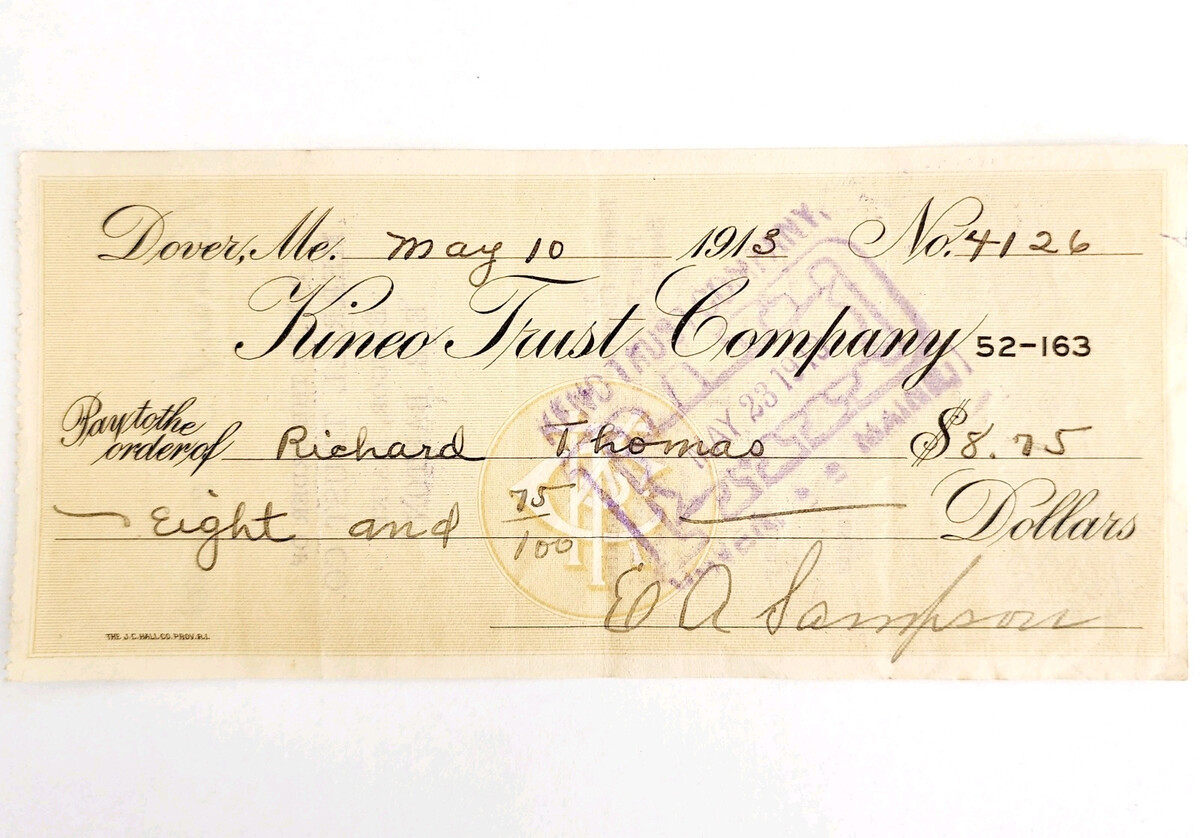 Dover, Me. May 10 1913 No. 4126
Kineo Trust Company 52-163
Pay to the order of Richard Thomas $8.75
Eight and 75/100 Dollars
E A Sampson
THE J.C. HALL CO. PROV. R.I.
KINEO TRUST COMPANY,
MAY 23 191
MAINE